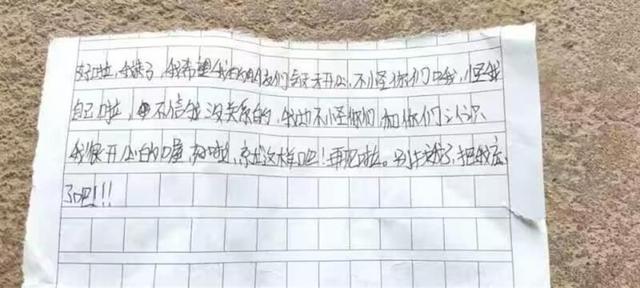 好啦,我走了,我希望我的朋友们每天开心,不怪你们哈,怪我
自己啦,不信我没关系的,我也不怪你们和你们认识
我很开心的喔,好啦,就这样吧!再见啦。别找我了,把我忘
了吧!!!